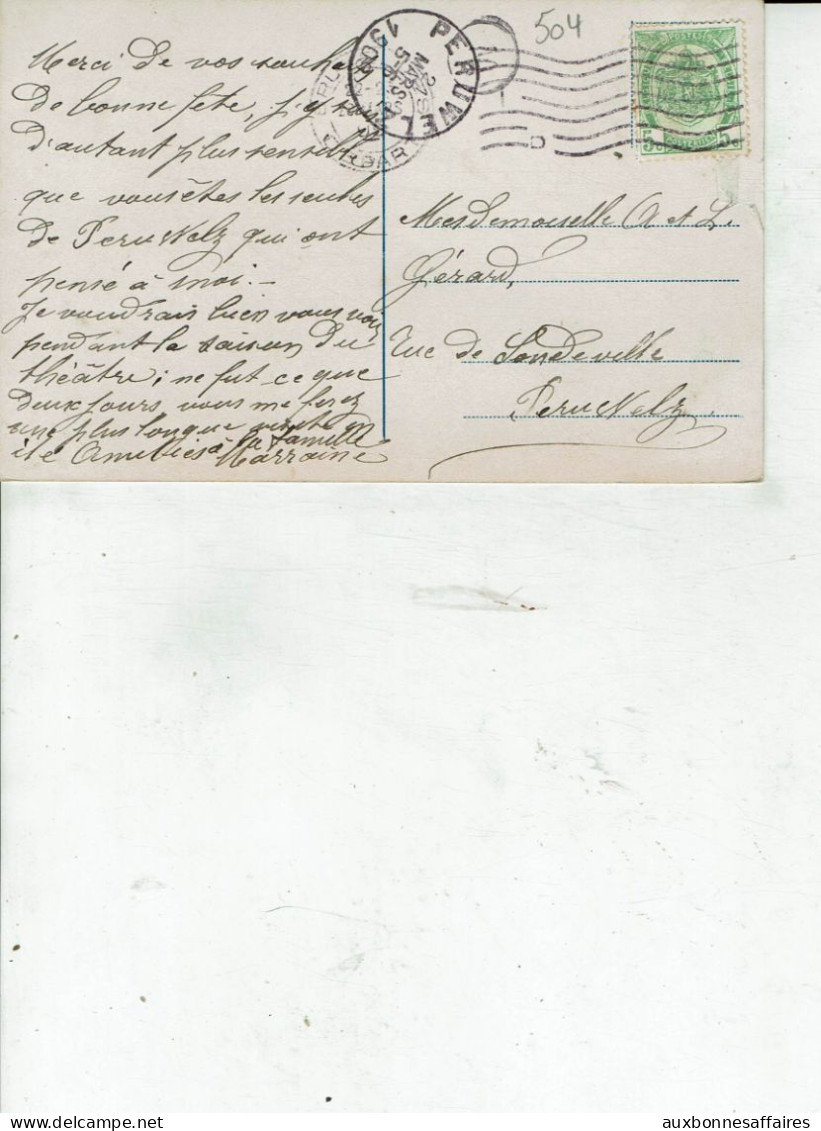 504
PERUWELZ
POSTES
5c 5c
Merci de vos souhaits
de bonne fête, j'y suis
d'autant plus sensible
que vous êtes les seules
de Peruwelz qui ont
pensé à moi. —
Je voudrais bien vous voir
pendant la saison du
théâtre; ne fut ce que
deux jours vous me ferez
une plus longue visite en
été Amitiés à la famille
Marraine
Mesdemoiselle A et L.
Gérard,
Rue de Sondeville
Peruwelz
auxbonnesaffaires